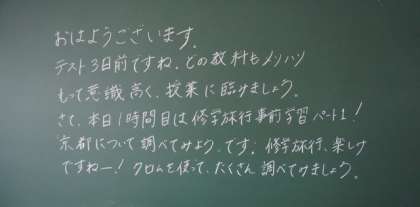 おはようございます。
テスト3日前ですね。どの教科もメリハリ
もって意識高く、授業に臨みましょう。
さて、本日1時間目は修学旅行事前学習パート1!
京都について調べてみよう、です。修学旅行、楽しみ
ですねー!クロムを使って、たくさん調べてみましょう。